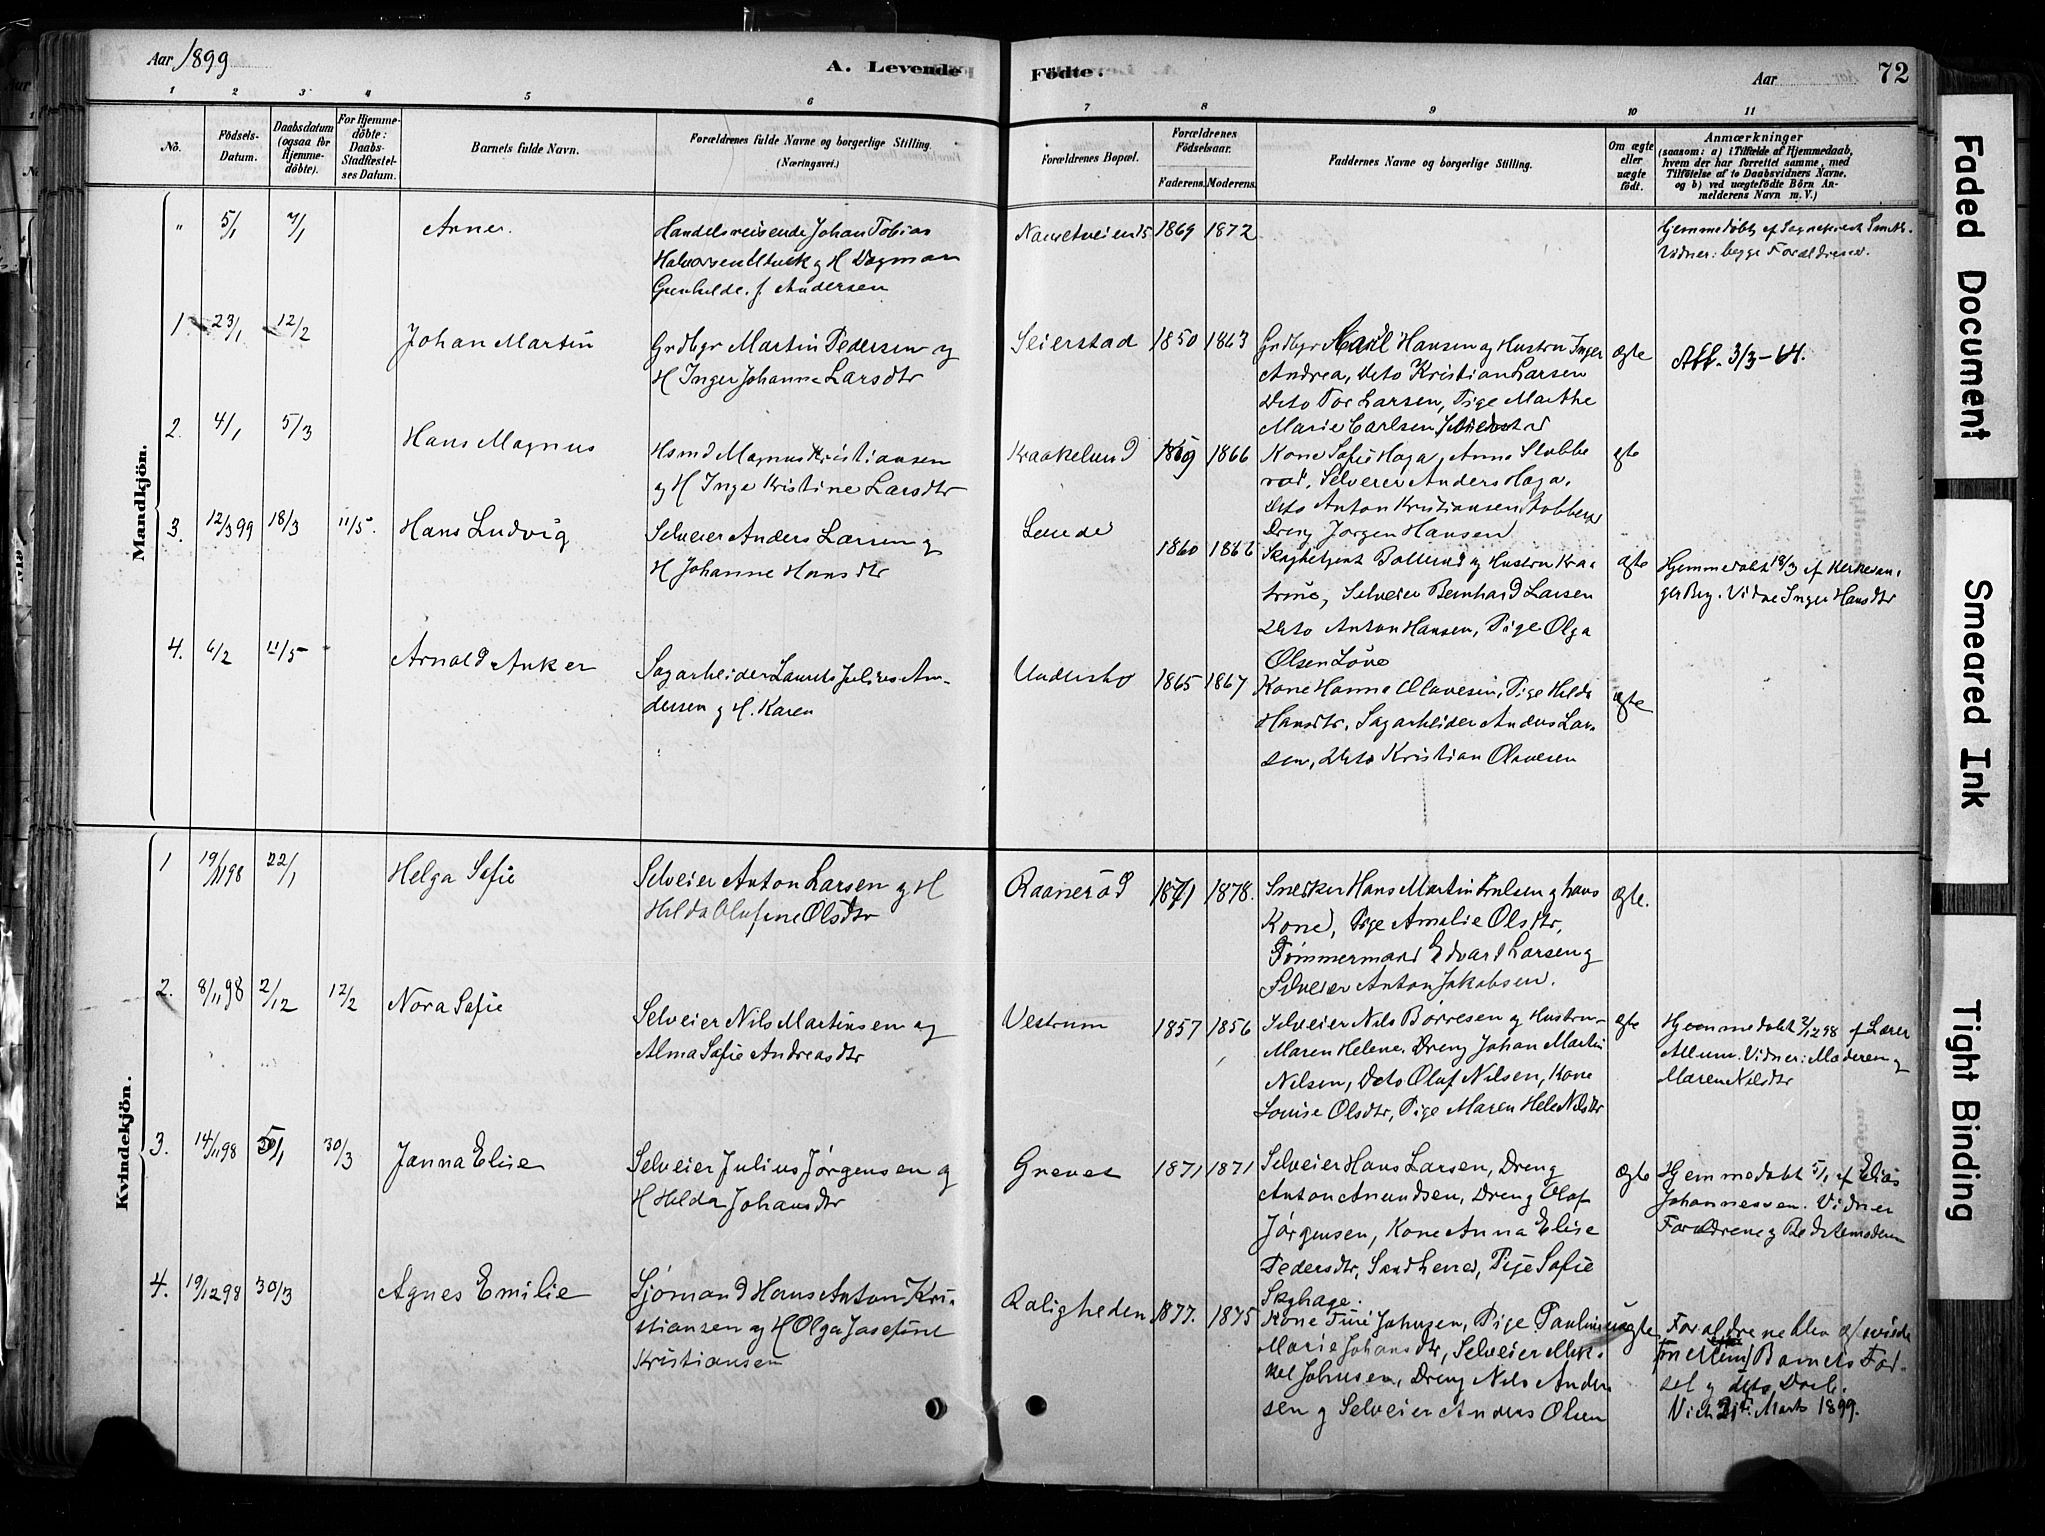 Aar 1899
A. Levende Födte.
Aar
72
1 2 3 4 5 6 7 8 9 10 11
No.
Födsels-Datum.
Daabsdatum (ogsaa for Hjemme-döbte).
For Hjemme-döbte: Daabs-Stadfæstel-ses Datum.
Barnets fulde Navn.
Forældrenes fulde Navne og borgerlige Stilling.
(Næringsvei.)
Forældrenes Bopæl.
Forældrenes Födselsaar.
Faderens. Moderens.
Faddernes Navne og borgerlige Stilling.
Om ægte eller uægte födt.
Anmærkninger
(saasom: a) i Tilfælde af Hjemmedaab,
hvem der har forrettet samme, med
Tilföielse af to Daabsvidners Navne,
og b) ved uægtefödte Börn An-
melderens Navn m. V.)
Mandkjön.
" 5/1 7/1 Arne
Handelsreisende Johan Tobias
Halvorsen g H Dagmar
f. Andersen
1869 1872
Hjemmedøbt af Sognepræst
Vidner: begge Forældrene.
1. 23/1 12/2 Johan Martin
Grdbgr Martin Pedersen g
H Inger Johanne Larsdtr
Seierstad 1850 1863
Grdbgr Karl Hansen og Hustru Inger
Andrea, Dto Kristian Larsen
Dto Tor Larsen, Pige Marthe
Marie Carlsen
ægte
Aff. 3/3-64.
2. 4/1 5/3 Hans Magnus
Hsmd Magnus Kristiansen
g H Inge Kristine Larsdtr
Kraakelund 1869 1866
Kone Sofie Haga, Anne Stubbe
rød, Selveier Anders Haga,
Dto Anton Kristiansen
Dreng Jørgen Hansen
ægte
3. 12/3 99 18/3 11/5. Hans Ludvig
Selveier Anders Larsen g
H Johanne Hansdtr
Lunde 1860 1866
g Hustru
Selveier Bernhard Larsen
Dto Anton Hansen, Pige Olga
Olsen Løve
ægte
Hjemmedøbt 18/3 af Kirkesan-
ger Berg. Vidne Inger Hansdtr
4. 6/2 11/5 Arnold Anker
Sagarbeider Laurits Julius An-
dersen g H. Karen
Undersbo 1865 1867
Kone Hanna Olavesen, Pige Hilda
Hansdtr, Sagarbeider Anders Lar-
sen, Dto Kristian Olavesen
ægte
Kvindekjön.
1 19/11 98 22/1 Helga Sofie
Selveier Anton Larsen g H
Hilda Olufine Olsdtr
Raanerød 1871 1878.
Snedker Hans Martin g hans
Kone, Pige Amalie Olsdtr,
Tømmermand Edvard Larsen g
Selveier Anton Jakobsen.
ægte.
2. 8/11 98 2/12 12/2 Nora Sofie
Selveier Nils Martinsen og
Alma Sofie Andreasdtr
Vestrum 1857 1856
Selveier Nils Børresen g Hustru
Maren Helene, Dreng Johan Martin
Nilsen, Dto Olaf Nilsen, Kone
Louise Olsdtr, Pige Maren Hele Nilsdtr
ægte
Hjemmedøbt 2/12 98 af Lærer
Allum. Vidner: Moderen g
Maren Nilsdtr
3. 14/11 98 5/1 30/3 Janna Elise
Selveier Julius Jørgensen g
H Hilda Johansdtr
Grevet 1871 1871
Selveier Hans Larsen, Dreng
Anton Amundsen, Dreng Olaf
Jørgensen, Kone Anna Elise
Pedersdtr, Pige Sofie
Skghage.
ægte
Hjemmedøbt 5/1 af Elias
Johannessen. Vidner
Forældrene g Bedstemoderen
4. 19/12 98 30/3 Agnes Emilie
Sjømand Hans Anton Kri-
stiansen og H Olga Josefine
Kristiansen
Roligheden 1877. 1875
Kone Johnsen, Pige Pauline
Marie Johansdtr, Selveier Mik-
kel Johnsen, Dreng Nils Ander
sen g Selveier Anders Olsen
uægte
Forældrene blev
Barnets Fød-
sel g dets Daab.
21de Marts 1899.
Faded Document
Smeared Ink
Tight Binding